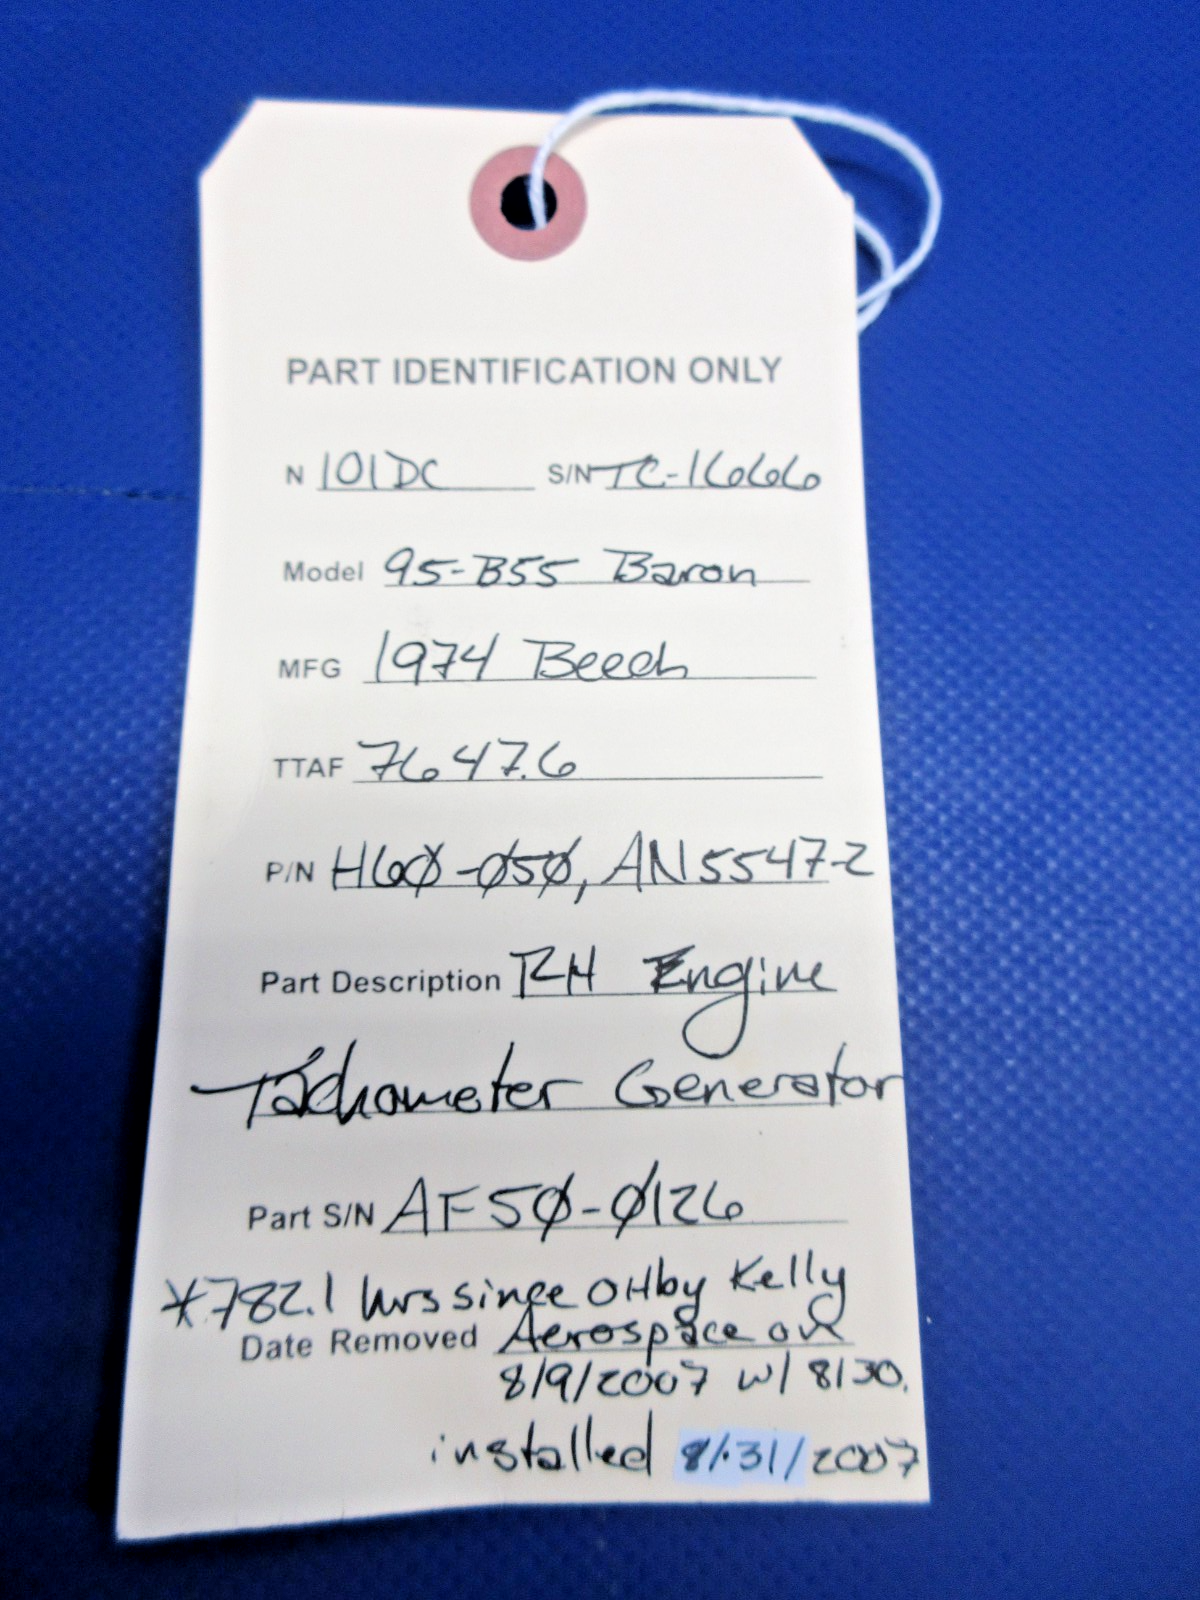 PART IDENTIFICATION ONLY
N 101DC S/N TC-1666
Model 95-B55 Baron
MFG 1974 Beech
TTAF 7647.6
P/N H60-050, AN5547-2
Part Description RH Engine
Tachometer Generator
Part S/N AF50-0126
*782.1 hrs since OH by Kelly
Date Removed Aerospace on
8/9/2007 w/ 8130.
installed 8/31/2007